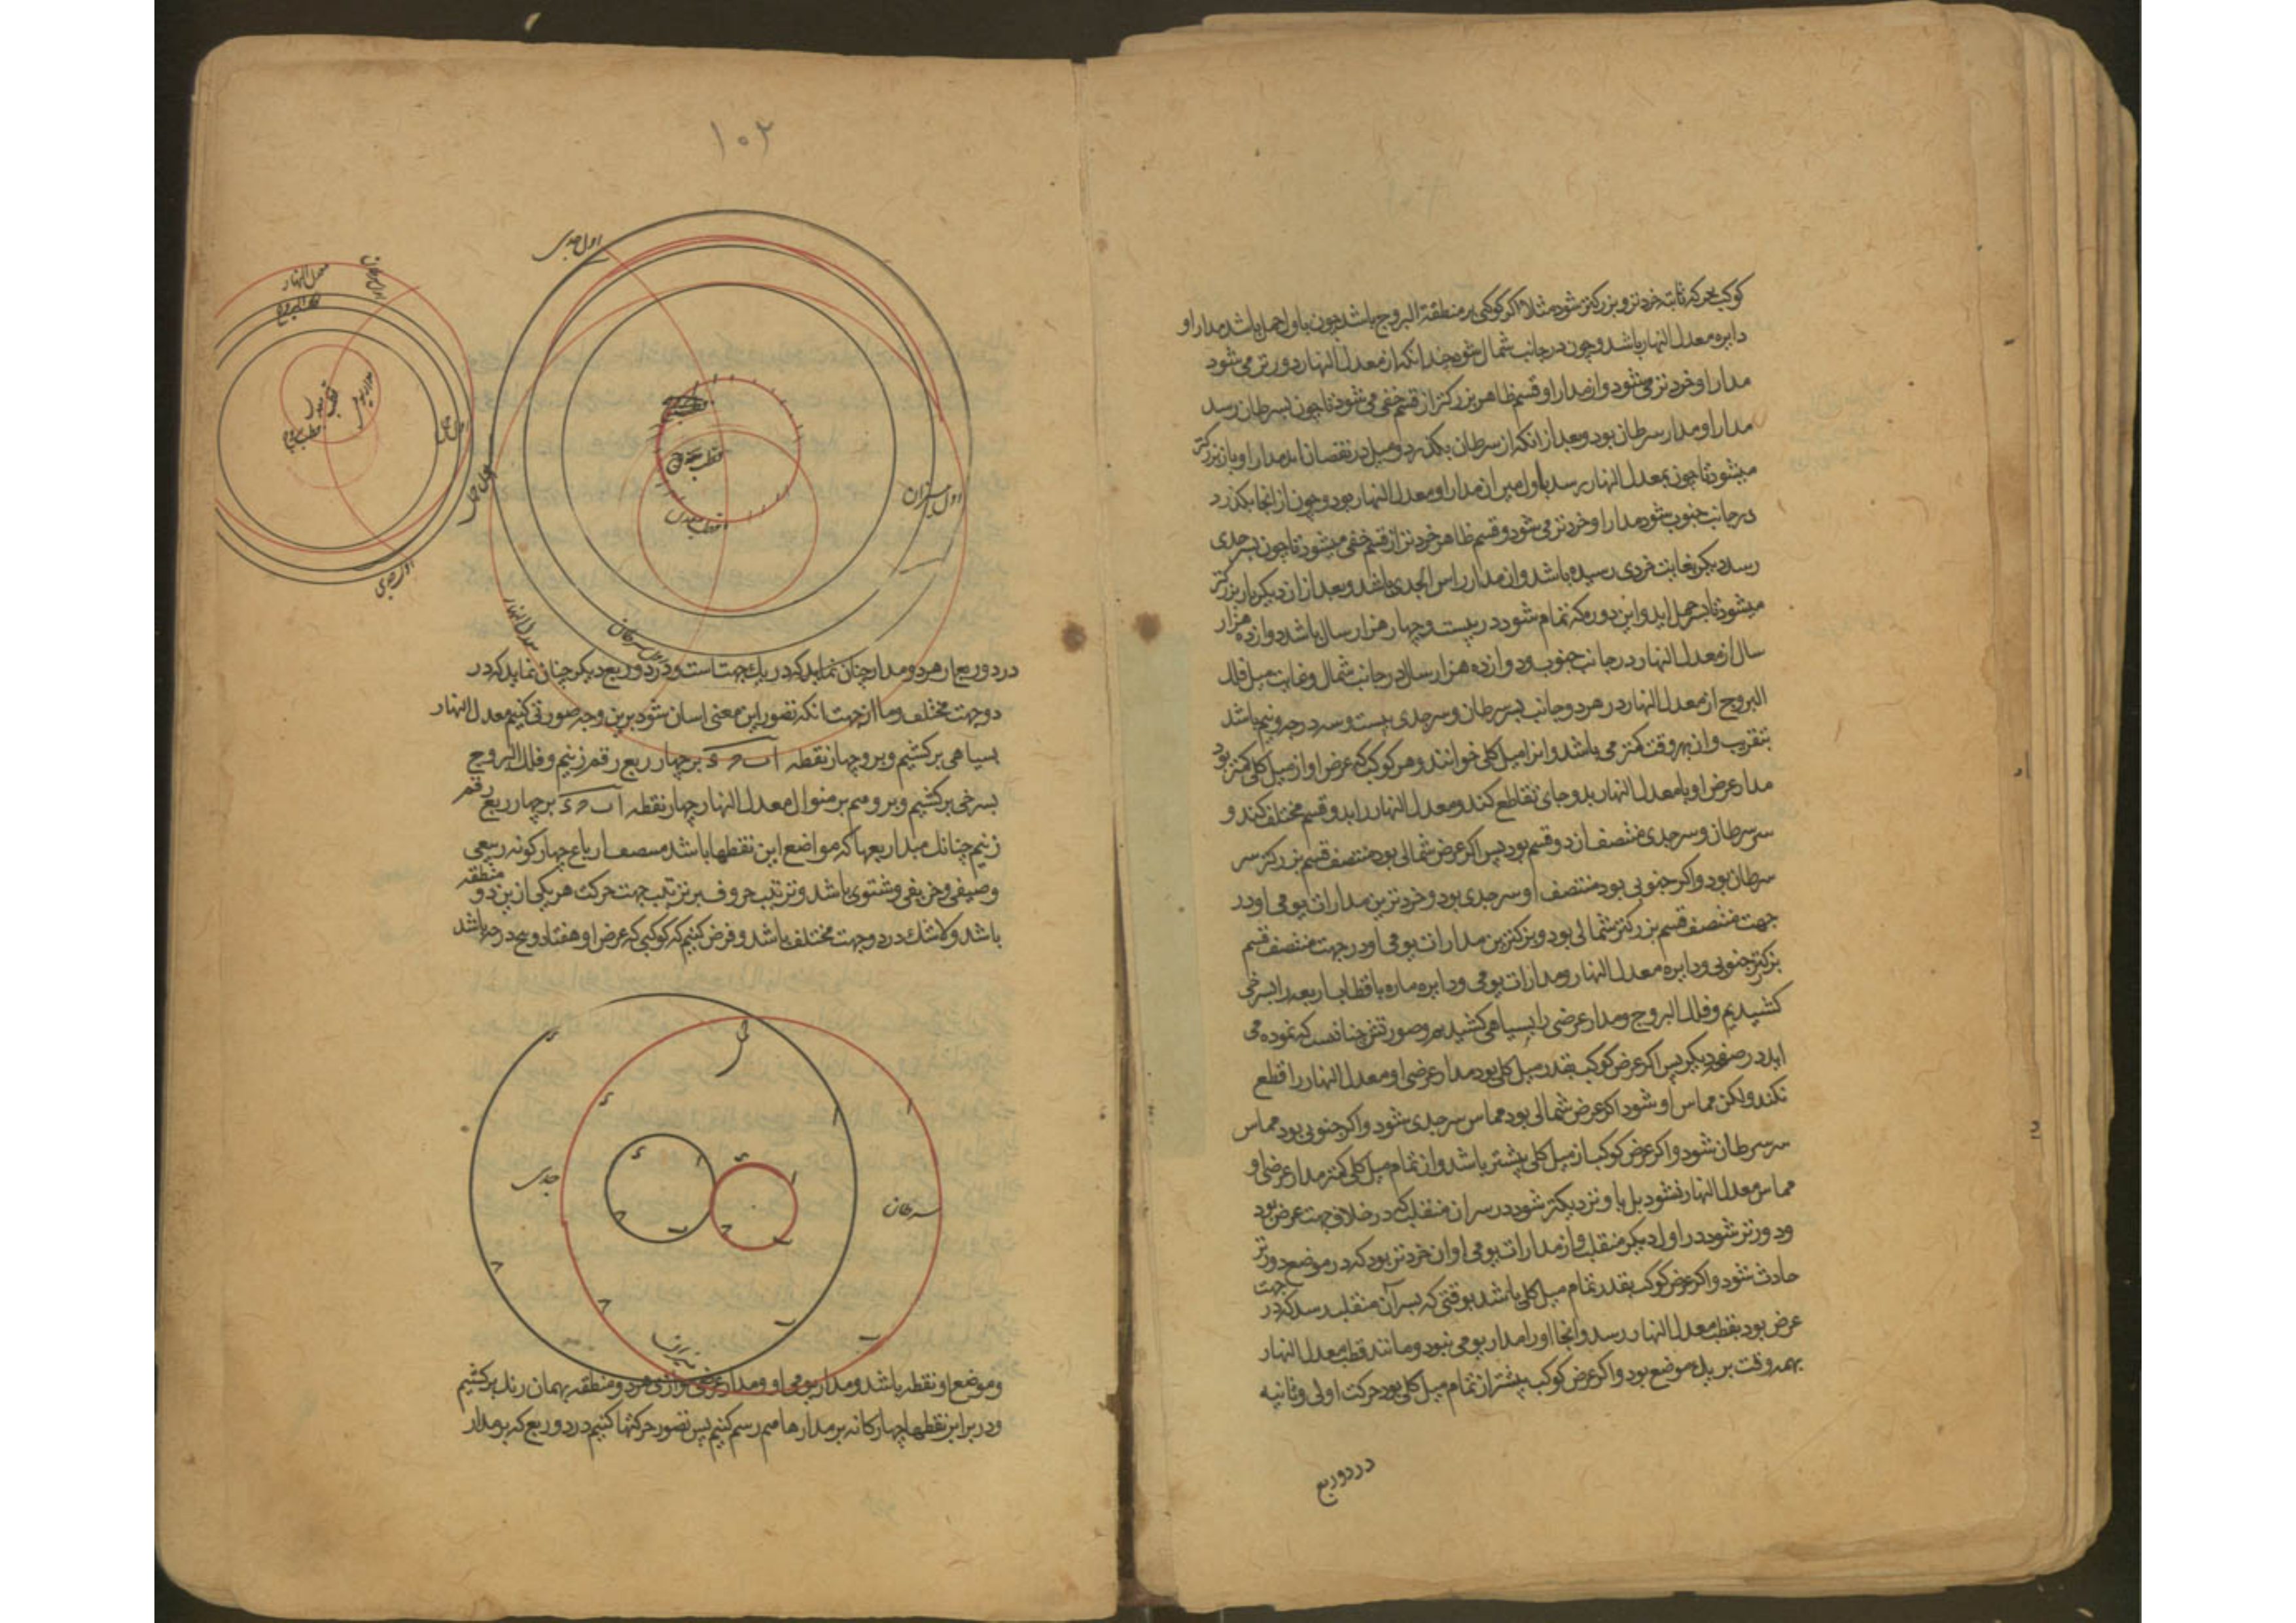 کوکب بحرکه ثابته خردتر و بزرکتر شود مثلا اکر کوکبی بر منطقة البروج باشد چون باول حمل باشد مدار او
دایره معدل النهار باشد و چون در جانب شمال شود چندانکه از معدل النهار دورتر می شود
مدار او خردتر می شود و از مدار او قسم ظاهر بزرکتر از قسم خفی می شود تا چون بسرطان رسد
مدار او مدار سرطان بود و بعد از انکه از سرطان بکذرد و میل در نقصان اید مدار او باز بزرکتر
میشود تا چون بمعدل النهار رسد باول میزان مدار او معدل النهار بود و چون از انجا بکذرد
در جانب جنوب شود مدار او خردتر می شود و قسم ظاهر خردتر از قسم خفی میشود تا چون بسر جدی
رسد دیکر بغایت خردی رسیده باشد وان مدار راس الجدی باشد و بعد از ان دیکر بار بزرکتر
میشود تا بسر حمل اید و این دوره که تمام شود در بیست و چهار هزار سال باشد دوازده هزار
سال از معدل النهار در جانب جنوب و دوازده هزار سال در جانب شمال و غایت میل فلک
البروج از معدل النهار در هر دو جانب بسر سرطان و سر جدی بیست و سه درجه و نیم باشد
بتقریب وان بهر وقت کمتر می باشد و انرا میل کلی خوانند و هر کوکب که عرض او از میل کلی کمتر بود
مدار عرض او با معدل النهار بدو جای تقاطع کند و معدل النهار را بدو قسم مختلف کند و
سر سرطان و سر جدی منتصف ان دو قسم بود پس اکر عرض شمالی بود منتصف قسم بزرکتر سر
سرطان بود و اکر جنوبی بود منتصف او سر جدی بود و خردترین مدارات یومی او در
جهت منتصف قسم بزرکتر شمالی بود و بزرکترین مدارات یومی او در جهت منتصف قسم
بزرکتر جنوبی و دایره معدل النهار و مدارات یومی و دایره ماره باقطاب اربعه را بسرخی
کشیدیم و فلک البروج و مدار عرضی را بسیاهی کشیدیم و صورتش چنانست که نموده می
اید در صفحه دیکر پس اکر عرض کوکب بقدر میل کلی بود مدار عرضی او معدل النهار را قطع
نکند ولکن مماس او شود اکر عرض شمالی بود مماس سر جدی شود و اکر جنوبی بود مماس
سر سرطان شود و اکر عرض کوکب از میل کلی بیشتر باشد و از تمام میل کلی کمتر مدار عرضی او
مماس معدل النهار نشود بل با و نزدیکتر شود در سر ان منقلب که در خلاف جهت عرض بود
و دورتر شود در اول دیکر منقلب و از مدارات یومی او ان خردتر بود که در موضع دورتر
حادث شود و اکر عرض کوکب بقدر تمام میل کلی باشد بوقتی که بسر آن منقلب رسد که در جهت
عرض بود بقطب معدل النهار رسد و انجا او را مدار یومی نبود و مانند قطب معدل النهار
بهمه وقت بر یک موضع بود و اکر عرض کوکب بیشتر از تمام میل کلی بود حرکت اولی و ثانیه
در دو ربع
۱۰۲
اول جدی
معدل النهار
فلک البروج
اول حمل
قطب معدل
قطب بروج
اول جدی
اول حمل
اول میزان
قطب معدل
معدل النهار
اول سرطان
در دو ربع از هر دو مدار چنان نماید که در یک جهت است و در دو ربع دیکر چنان نماید که در
دو جهت مختلف و ما از جهت انکه تصور این معنی اسان شود برین وجه صورتی کنیم معدل النهار
بسیاهی برکشیم و برو چهار نقطه آ ب ح ء بر چهار ربع رقم زنیم و فلک البروج
بسرخی برکشیم و برو هم بر منوال معدل النهار چهار نقطه آ ب ح ء بر چهار ربع رقم
زنیم چنانک مبدا ربعها که مواضع این نقطها باشد منتصف ارباع چهارکونه ربیعی
و صیفی و خریفی و شتوی باشد و ترتیب حروف بر ترتیب جهت حرکت هر یکی ازین دو منطقه
باشد و لاشک در دو جهت مختلف باشد و فرض کنیم که کوکبی که عرض او هفتاد و پنج درجه باشد
جدی
سرطان
میزان
و موضع او نقطه باشد و مدار یومی او و مدار عرضی موازی هر دو منطقه بهمان رنک برکشیم
و در برابر نقطها چهارکانه بر مدارها هم رسم کنیم پس تصور حرکتها کنیم در دو ربع که بر مدار